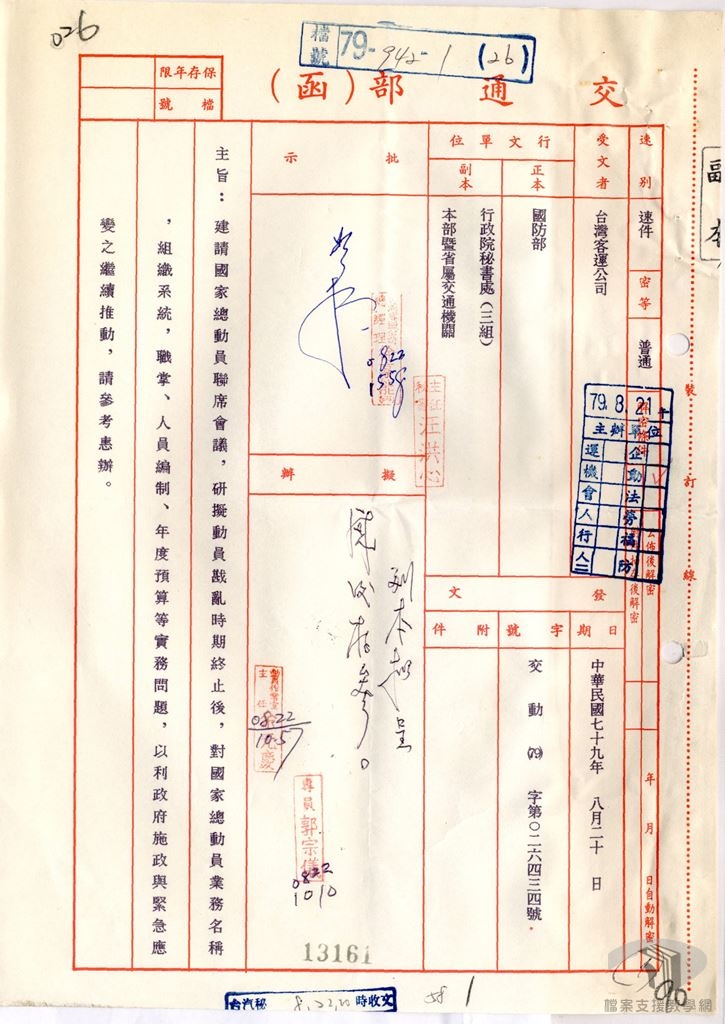 026
檔號 79-942-1 (26)
交通部(函)
保存年限
檔號
副本
速別
速件
密等
普通
解密條件
公佈後解密
年 月 日自動解密
裝訂線
受文者
台灣客運公司
行文單位
正本
國防部
副本
行政院秘書處(三組)
本部暨省屬交通機關
發文
日期
中華民國七十九年 八月二十 日
字號
交動(79)字第〇二六四三四號
附件
79. 8. 21
主辦單位
批示
0822
1558
江洪心
擬辦
副本抄呈
陳閱後存參。
0822
1057
專員 郭宗儀
0822
1010
主旨：建請國家總動員聯席會議，研擬動員戡亂時期終止後，對國家總動員業務名稱
，組織系統，職掌、人員編制、年度預算等實務問題，以利政府施政與緊急應
變之繼續推動，請參考惠辦。
13161
台汽秘 收文時
58 1
檔案支援教學網